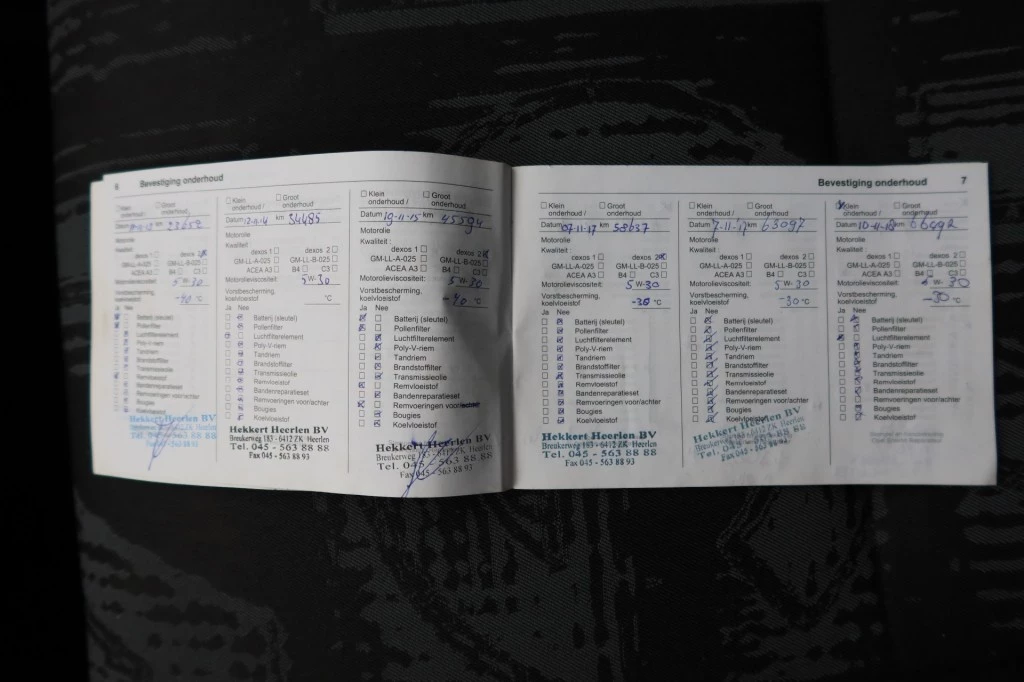 6 Bevestiging onderhoud
Klein onderhoud / Groot onderhoud
km 23652
Motorolie
Kwaliteit:
dexos 1
GM-LL-A-025 GM-LL-B-025
ACEA A3 B4 C3
Motorolieviscositeit: 5 W-30
Vorstbescherming,
koelvloeistof -40 °C
Ja Nee
Batterij (sleutel)
Pollenfilter
Luchtfilterelement
Poly-V-riem
Tandriem
Brandstoffilter
Transmissieolie
Remvloeistof
Bandenreparatieset
Remvoeringen voor/achter
Bougies
Koelvloeistof
Hekkert Heerlen BV
Klein onderhoud / Groot onderhoud
Datum 12-11-14 km 34485
Motorolie
Kwaliteit:
dexos 1 dexos 2
GM-LL-A-025 GM-LL-B-025
ACEA A3 B4 C3
Motorolieviscositeit: 5 W-30
Vorstbescherming,
koelvloeistof °C
Ja Nee
Batterij (sleutel)
Pollenfilter
Luchtfilterelement
Poly-V-riem
Tandriem
Brandstoffilter
Transmissieolie
Remvloeistof
Bandenreparatieset
Remvoeringen voor/achter
Bougies
Koelvloeistof
Hekkert Heerlen BV
Breukerweg 183 - 6412 ZK Heerlen
Tel. 045 - 563 88 88
Fax 045 - 563 88 93
Klein onderhoud / Groot onderhoud
Datum 19-11-15 km 45594
Motorolie
Kwaliteit:
dexos 1 dexos 2
GM-LL-A-025 GM-LL-B-025
ACEA A3 B4 C3
Motorolieviscositeit: 5 W-30
Vorstbescherming,
koelvloeistof -40 °C
Ja Nee
Batterij (sleutel)
Pollenfilter
Luchtfilterelement
Poly-V-riem
Tandriem
Brandstoffilter
Transmissieolie
Remvloeistof
Bandenreparatieset
Remvoeringen voor/achter
Bougies
Koelvloeistof
Hekkert Heerlen BV
Breukerweg 183 - 6412 ZK Heerlen
Tel. 045 - 563 88 88
Fax 045 - 563 88 93
Bevestiging onderhoud 7
Klein onderhoud / Groot onderhoud
Datum 07-11-17 km 58637
Motorolie
Kwaliteit:
dexos 1 dexos 2
GM-LL-A-025 GM-LL-B-025
ACEA A3 B4 C3
Motorolieviscositeit: 5 W-30
Vorstbescherming,
koelvloeistof -30 °C
Ja Nee
Batterij (sleutel)
Pollenfilter
Luchtfilterelement
Poly-V-riem
Tandriem
Brandstoffilter
Transmissieolie
Remvloeistof
Bandenreparatieset
Remvoeringen voor/achter
Bougies
Koelvloeistof
Hekkert Heerlen BV
Breukerweg 183 - 6412 ZK Heerlen
Tel. 045 - 563 88 88
Fax 045 - 563 88 93
Klein onderhoud / Groot onderhoud
Datum 7-11-17 km 63097
Motorolie
Kwaliteit:
dexos 1 dexos 2
GM-LL-A-025 GM-LL-B-025
ACEA A3 B4 C3
Motorolieviscositeit: 5 W-30
Vorstbescherming,
koelvloeistof -30 °C
Ja Nee
Batterij (sleutel)
Pollenfilter
Luchtfilterelement
Poly-V-riem
Tandriem
Brandstoffilter
Transmissieolie
Remvloeistof
Bandenreparatieset
Remvoeringen voor/achter
Bougies
Koelvloeistof
Hekkert Heerlen BV
Klein onderhoud / Groot onderhoud
Datum 10-11-18 km 66492
Motorolie
Kwaliteit:
dexos 1 dexos 2
GM-LL-A-025 GM-LL-B-025
ACEA A3 B4 C3
Motorolieviscositeit: W-30
Vorstbescherming,
koelvloeistof -30 °C
Ja Nee
Batterij (sleutel)
Pollenfilter
Luchtfilterelement
Poly-V-riem
Tandriem
Brandstoffilter
Transmissieolie
Remvloeistof
Bandenreparatieset
Remvoeringen voor/achter
Bougies
Koelvloeistof